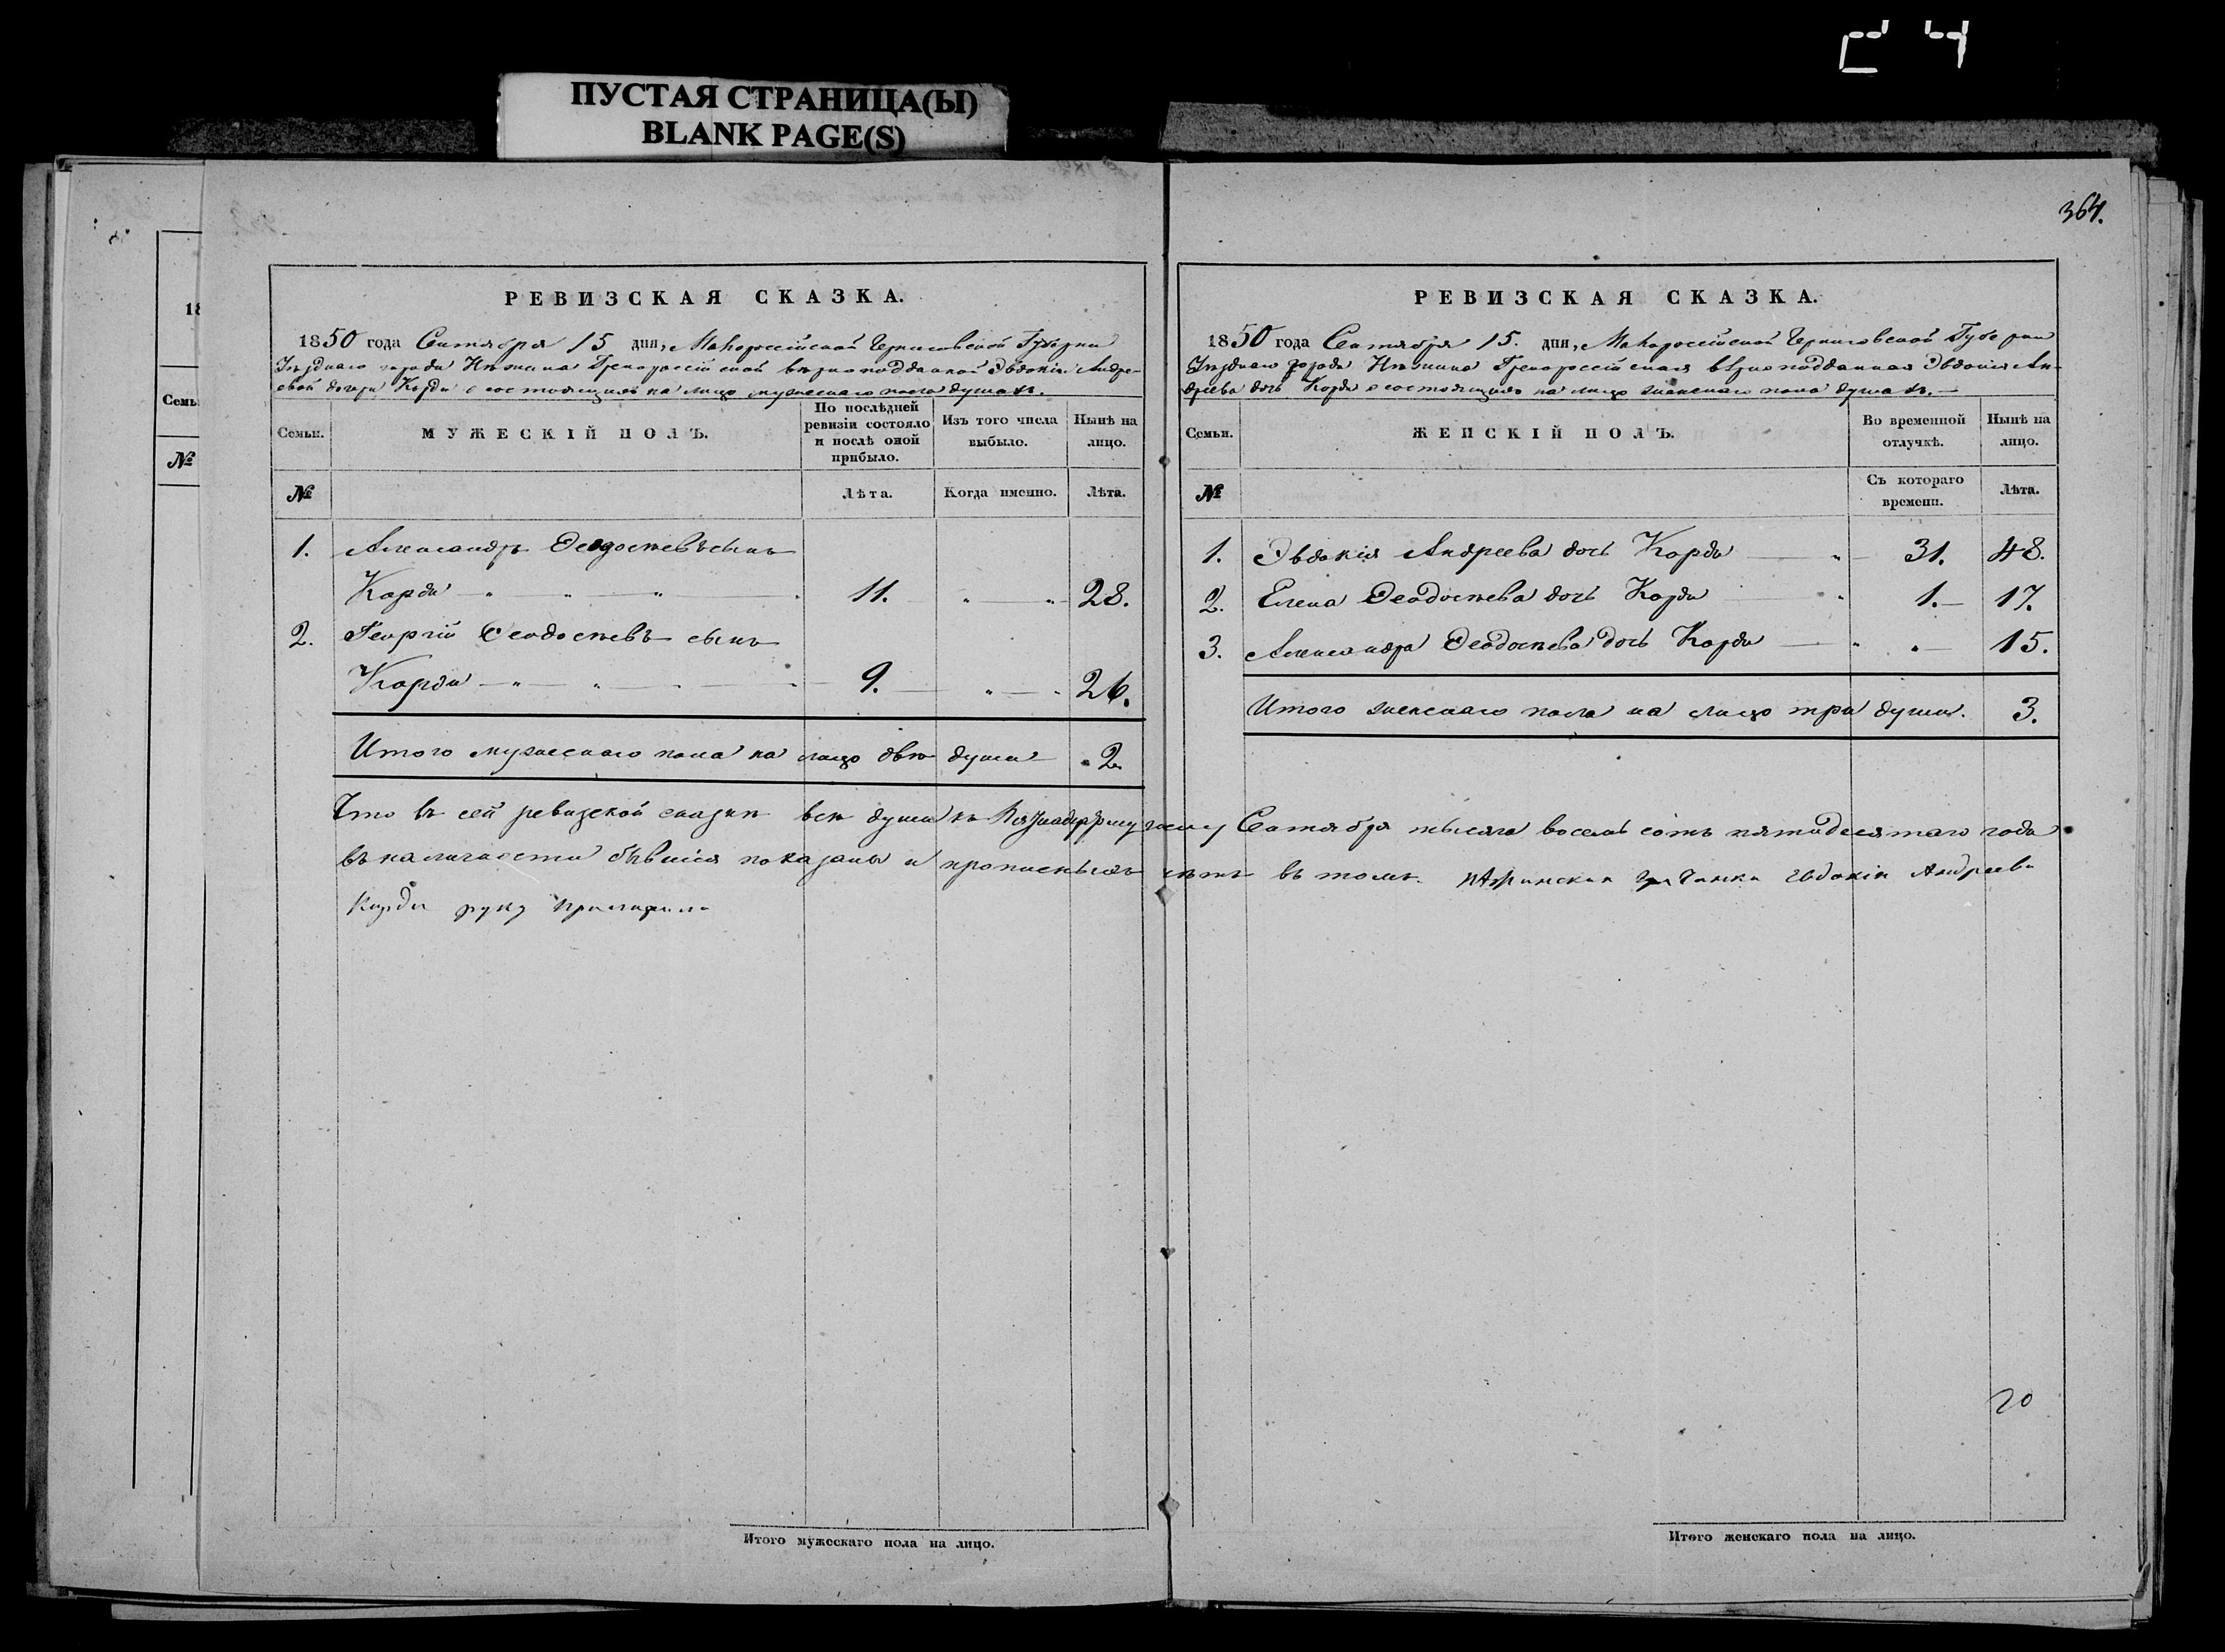 ПУСТАЯ СТРАНИЦА(Ы)
BLANK PAGE(S)
18
Семь
№
РЕВИЗСКАЯ СКАЗКА.
1850 года Сентября 15 дня, Малороссійской Черниговской Губерніи
Уѣзднаго города Нѣжина Грекороссійской вѣрноподданной Эвдокіи Андре-
евой дочери Корди о состоящихъ на лицо мужескаго пола душахъ.
Семьи.
МУЖЕСКІЙ ПОЛЪ.
По послѣдней ревизіи состояло и послѣ оной прибыло.
Изъ того числа выбыло.
Нынѣ на лицо.
№
Лѣта.
Когда именно.
Лѣта.
1. Александръ Феодосіевъ сынъ
Корди 11. 28.
2. Георгій Феодосіевъ сынъ
Корди 9. 26.
Итого мужескаго пола на лицо двѣ души 2
Итого мужескаго пола на лицо.
364.
РЕВИЗСКАЯ СКАЗКА.
1850 года Сентября 15. дня, Малороссійской Черниговской Губерніи
Уѣзднаго города Нѣжина Грекороссійская вѣрноподданная Эвдокія Ан-
дреева дочь Корди о состоящихъ на лицо женскаго пола душахъ.
Семьи.
ЖЕНСКІЙ ПОЛЪ.
Во временной отлучкѣ.
Нынѣ на лицо.
№
Съ котораго времени.
Лѣта.
1. Эвдокія Андреева дочь Корди 31. 48.
2. Елена Феодосіева дочь Корди 1. 17.
3. Александра Феодосіева дочь Корди 15.
Итого женскаго пола на лицо три души. 3.
Что въ сей ревизской сказкѣ всѣ души къ Сентября тысяча восемь сотъ пятидесятаго года
въ наличности бывшія показаны и прописныхъ нѣтъ въ томъ Андреева
Корди руку приложила
20
Итого женскаго пола на лицо.